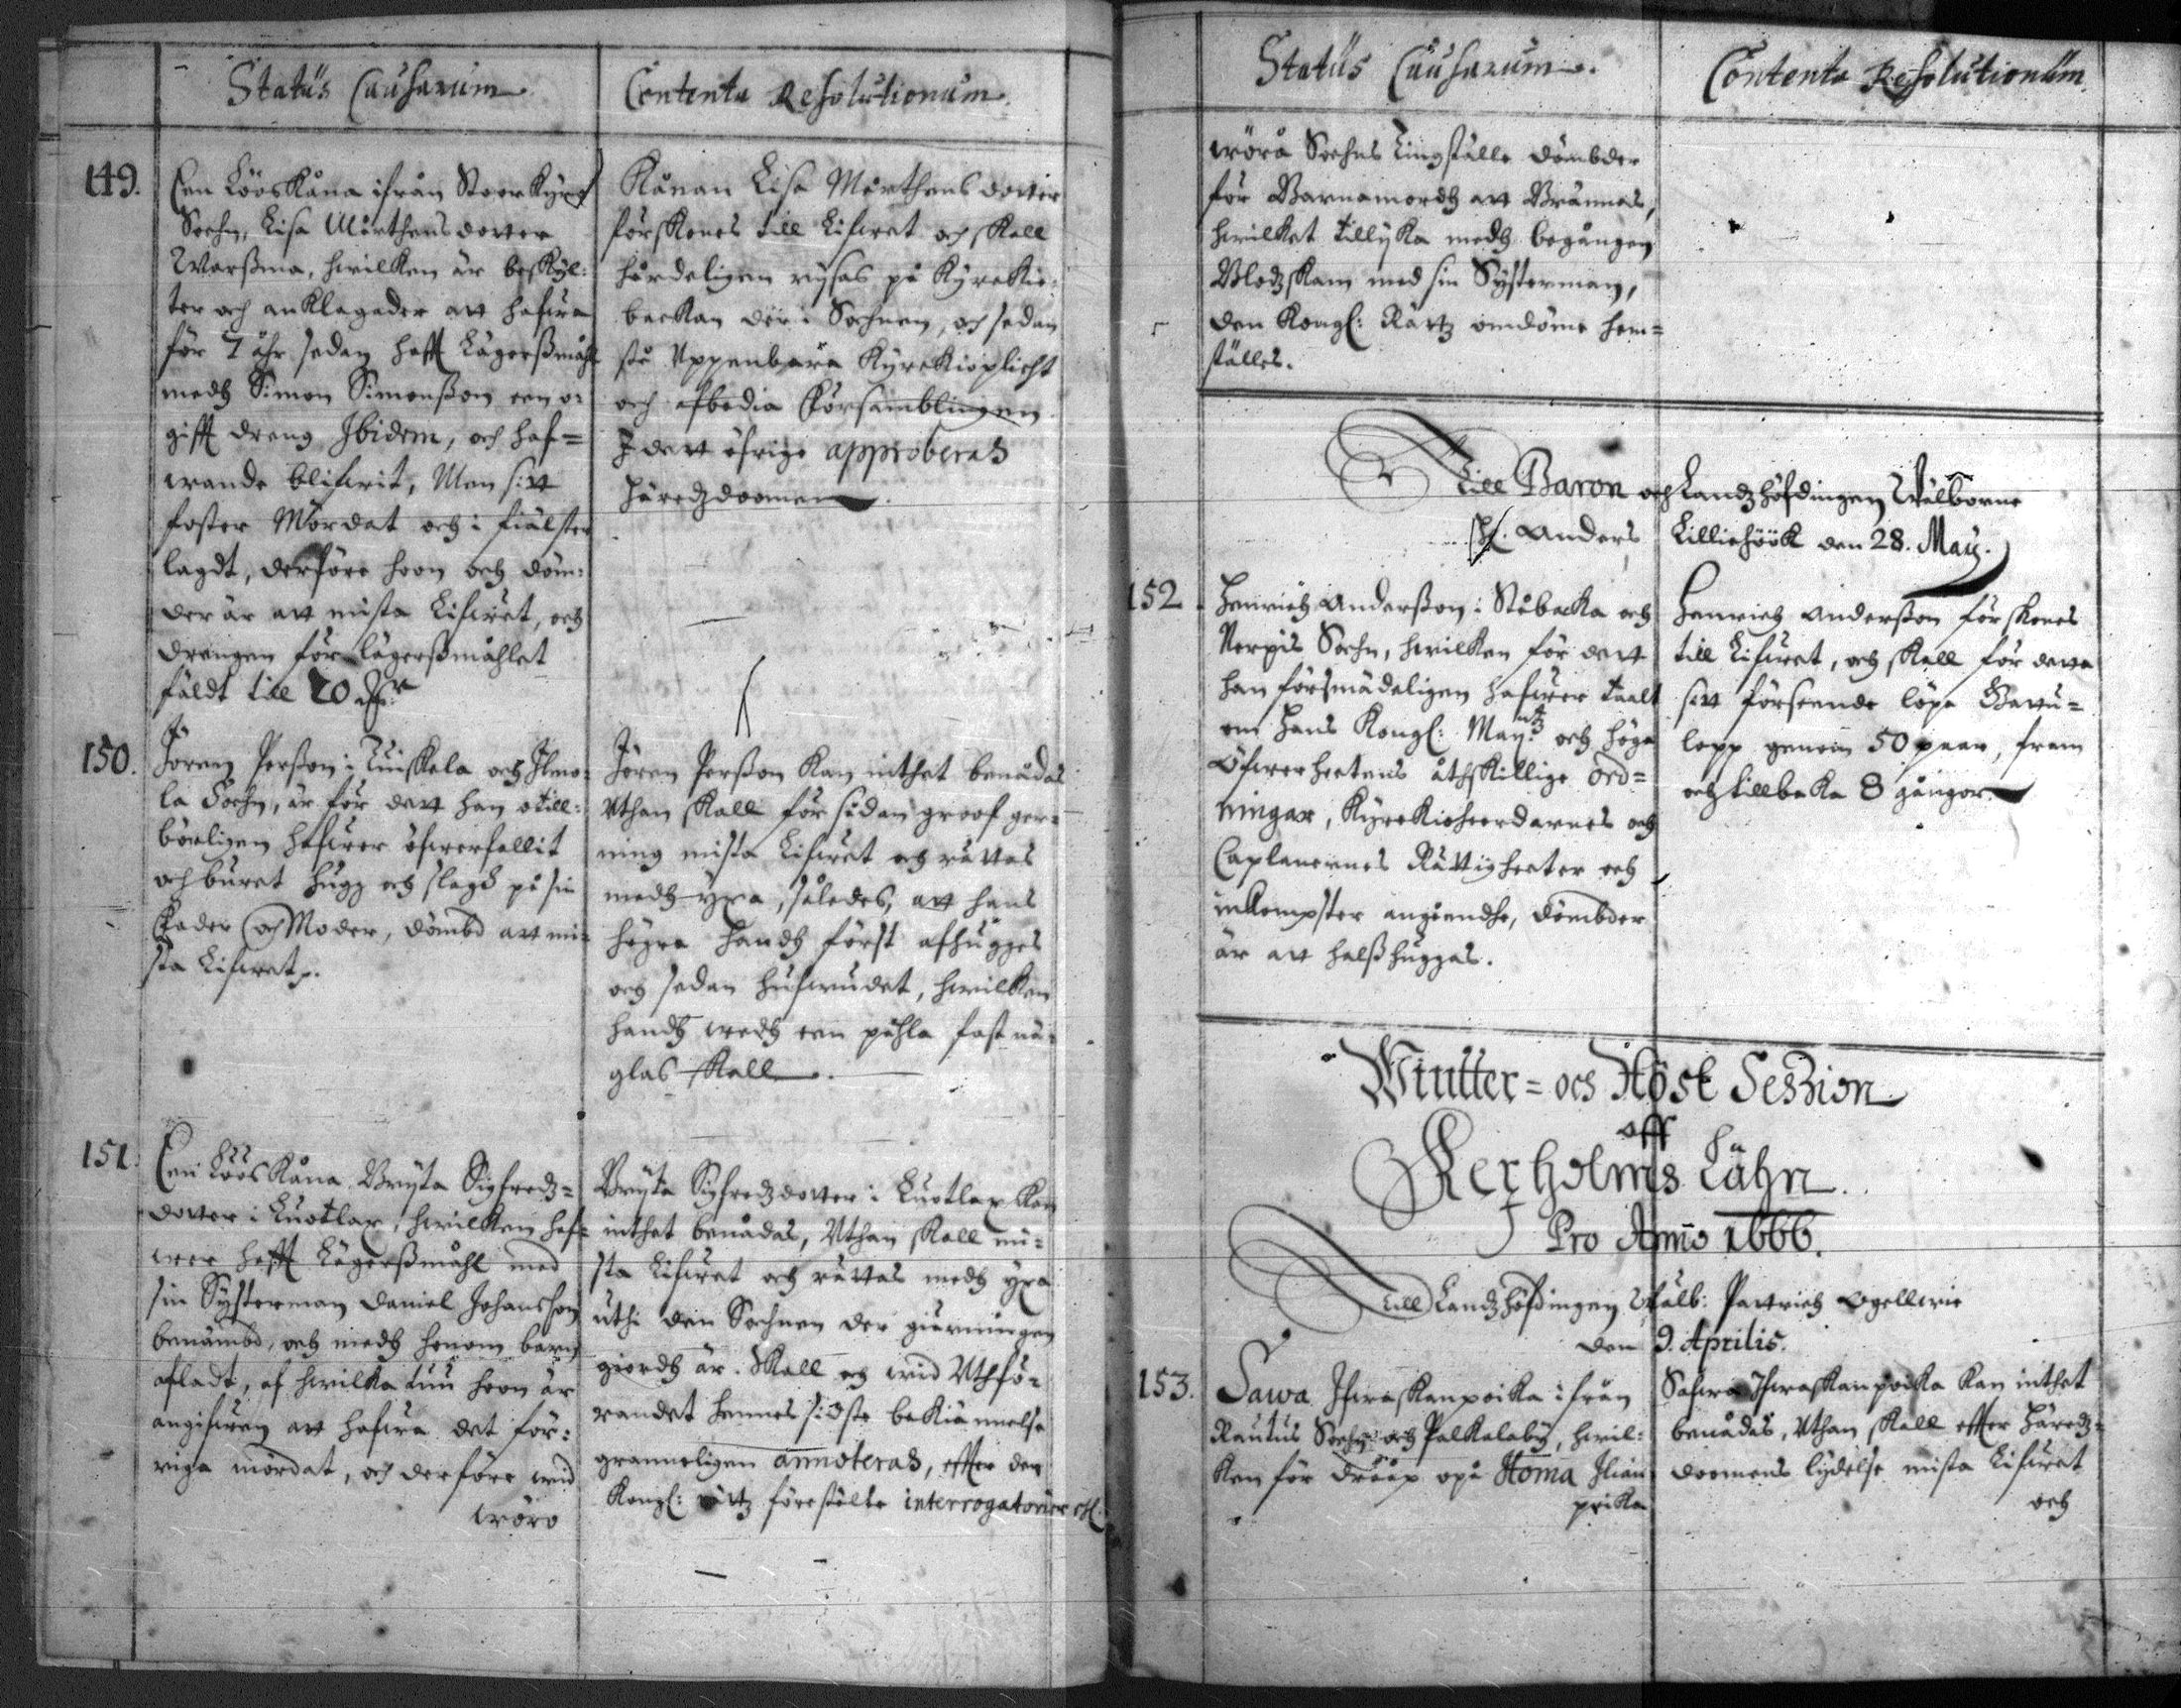 Status Causarum
Contenta Resolutionum.
149.
Een Löös Kåna ifrån Stoor Kyro
Sochn, Lisa Mårthens dotter
Warßma, hwilken är beskyl:
ter och anklagader att hafwa
för 7 åhr sedan hafft Lägerßmåhl
medh Simon Simonßon een o:
gifft dreng Ibidem, och haf=
wande blifwit, Men sitt
foster Mördat och i fiälster
lagdt, derföre hoon och döm:
der är att mista Lifwet, och
drengen för lägerßmåhlet
fäldt till 20 dlr
Kånan Lisa Mårthens dotter
förskones till Lifwet och skall
hårdeligen rijsas på Kyrckio:
backan der i Sochnen, och sedan
stå Uppenbara Kyrckioplicht
och afbedia Församblingen
I dett öfrige approberas
Häredzdoomen.
150.
Jören Persson i Tuiskula och Ilmo:
la Sochn, är för dett han otill:
börligen hafwer öfwerfallit
och buret hugg och slagh på sin
Fader och Moder, dömbd att mi:
sta Lifwet.
Jören Perßon Kan inthet benådas
Uthan skall för sådan groof ger:
ning mista Lifwet och rättas
medh yxa, således, att hans
högra handh först afhugges
och sedan hufwudet, hwilken
handh wedh een påhla fast nä:
glas skall.
151.
Een Löös Kåna Bryta Sigfredz=
dotter i Luotlax, hwilken haf=
wer hafft Lägerßmåhl med
sin Systerman Daniel Johansson
benämbd, och medh honom barn
afladt, af hwilka tuu hoon är
angifwen att hafwa det för:
riga mördat, och derföre wid
wörå
Bryta Sigfredzdotter i Luotlax Kan
inthet benådas, Uthan skall mi:
sta Lifwet och rättas medh yxa
uthi den Sochnen der gierningen
giordh är. Skall och wid Uthfö:
randet hennes sidste bekiännelse
granneligen annoteras, effter den
Kongl: rätz förestälte interrogatorier etc.
Status Causarum.
Contenta Resolutionum.
wörå Sochns Tingställe dömbder
för Barnamordh att Brännas,
hwilket tillijka medh begången
Blodzskam med sin Systerman,
den Kongl: Rätz omdöme hem=
ställes.
Till Baron och Landzhöfdingen Wälborne
H. Anders Lilliehöök den 28. Maij.
152
Henrich Anderßon i Ståbacka och
Nerpis Sochn, hwilken för dett
han försmädeligen hafwer taalt
om Hans Kongl: May:tz och höga
Öfwerheetens åthskillige ord=
ningar, Kyrckioheerdarnes och
Caplanernes Rättigheeter och
inkompster angåendhe, dömbder
är att halßhuggas.
Henrich Anderßon förskones
till Lifwet, och skall för detta
sitt förseende löpa Gatu=
lopp genom 50 paar, fram
och tillbaka 8 gånger.
Wintter= och Höst Session
aff
Kexholms Lähn.
Pro Anno 1666.
Till Landzhöfdingen Wälb: Patrich Ogellwie
den 9. Aprilis.
153.
Sawa Ifwaskanpoika ifrån
Rautus Sochn och Palkalaby, hwil:
ken för dråp opå Homa Ilian
poika
Safwa Ifwaskanpoika Kan inthet
benådas, Uthan skall effter Häredz=
doomens lydelse mista Lifwet
och